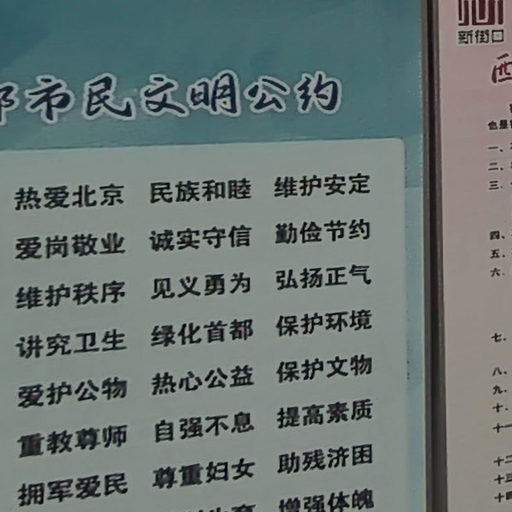 市民文明公约
热爱北京 民族和睦 维护安定
爱岗敬业 诚实守信 勤俭节约
维护秩序 见义勇为 弘扬正气
讲究卫生 绿化首都 保护环境
爱护公物 热心公益 保护文物
重教尊师 自强不息 提高素质
拥军爱民 尊重妇女 助残济困
增强体魄
新街口
西
也是
一、
二、
三、
四、
五、
六、
七、
八、
九、
十、
十一
十二
十三
十四